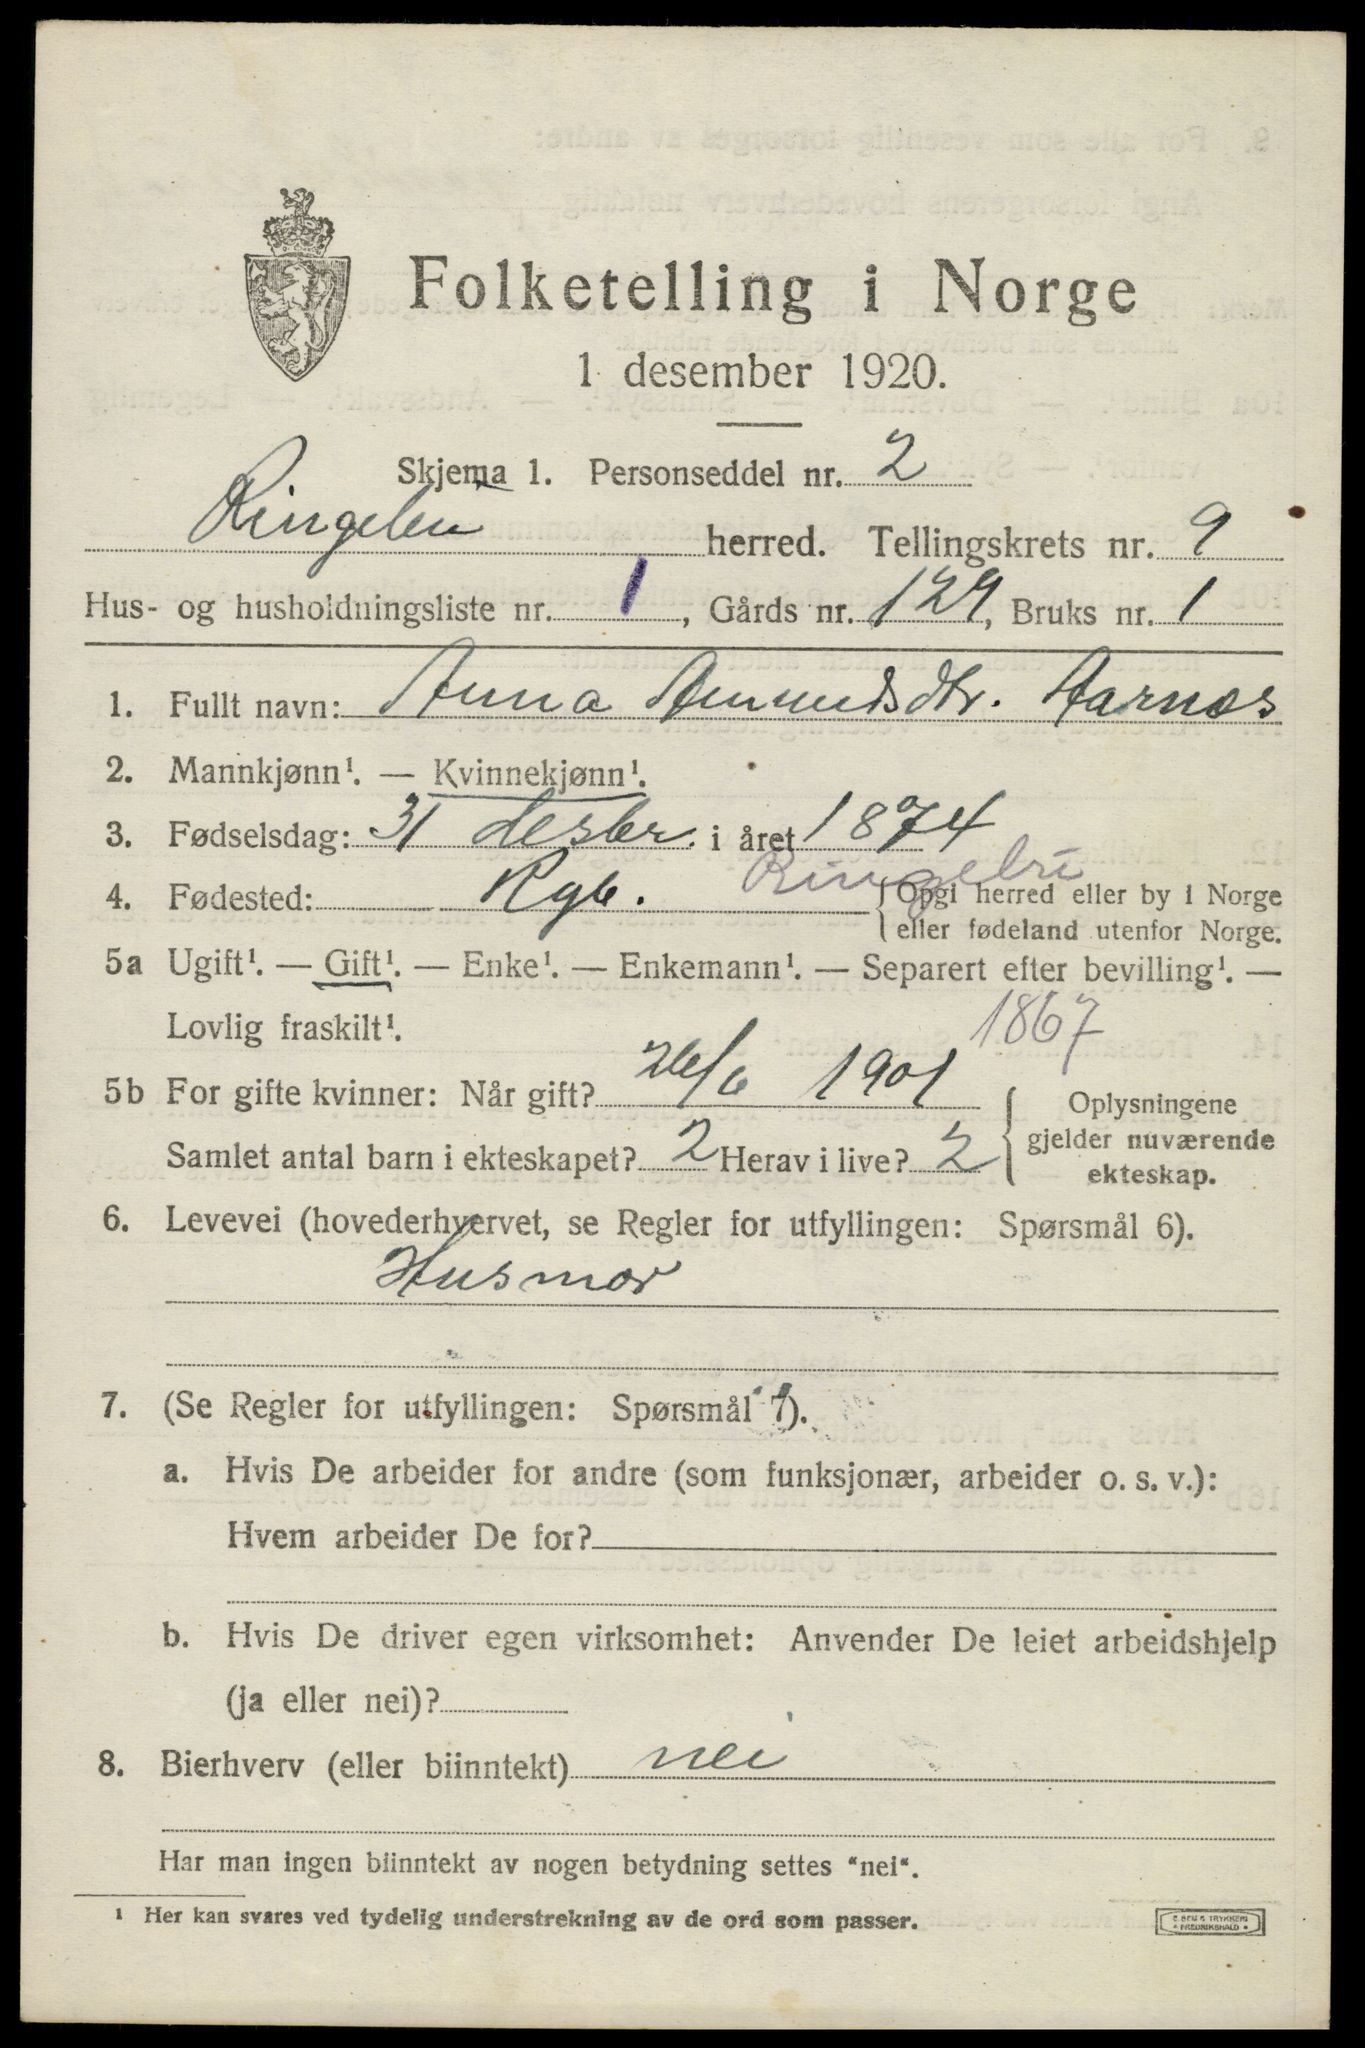 Folketelling i Norge
1 desember 1920.
Skjema 1. Personseddel nr. 2
Ringebu herred. Tellingskrets nr. 9
Hus- og husholdningsliste nr. 1, Gårds nr. 129, Bruks nr. 1
1. Fullt navn: Anna Amundsdtr. Aarnæs
2. Mannkjønn¹. — Kvinnekjønn¹.
3. Fødselsdag: 31 desbr. i året 1874
Ringebu
4. Fødested: Rgb. {Opgi herred eller by i Norge
eller fødeland utenfor Norge.
5a Ugift¹. — Gift¹. — Enke¹. — Enkemann¹. — Separert efter bevilling¹. —
Lovlig fraskilt¹. 1867
5b For gifte kvinner: Når gift? 26/6 1901
Samlet antal barn i ekteskapet? 2 Herav i live? 2
{Oplysningene
gjelder nuværende
ekteskap.
6. Levevei (hovederhvervet, se Regler for utfyllingen: Spørsmål 6).
Husmor
7. (Se Regler for utfyllingen: Spørsmål 7).
a. Hvis De arbeider for andre (som funksjonær, arbeider o. s. v.):
Hvem arbeider De for?
b. Hvis De driver egen virksomhet: Anvender De leiet arbeidshjelp
(ja eller nei)?
8. Bierhverv (eller biinntekt) nei
Har man ingen biinntekt av nogen betydning settes "nei".
¹ Her kan svares ved tydelig understrekning av de ord som passer.
TRYKKERI
FREDRIKSHALD